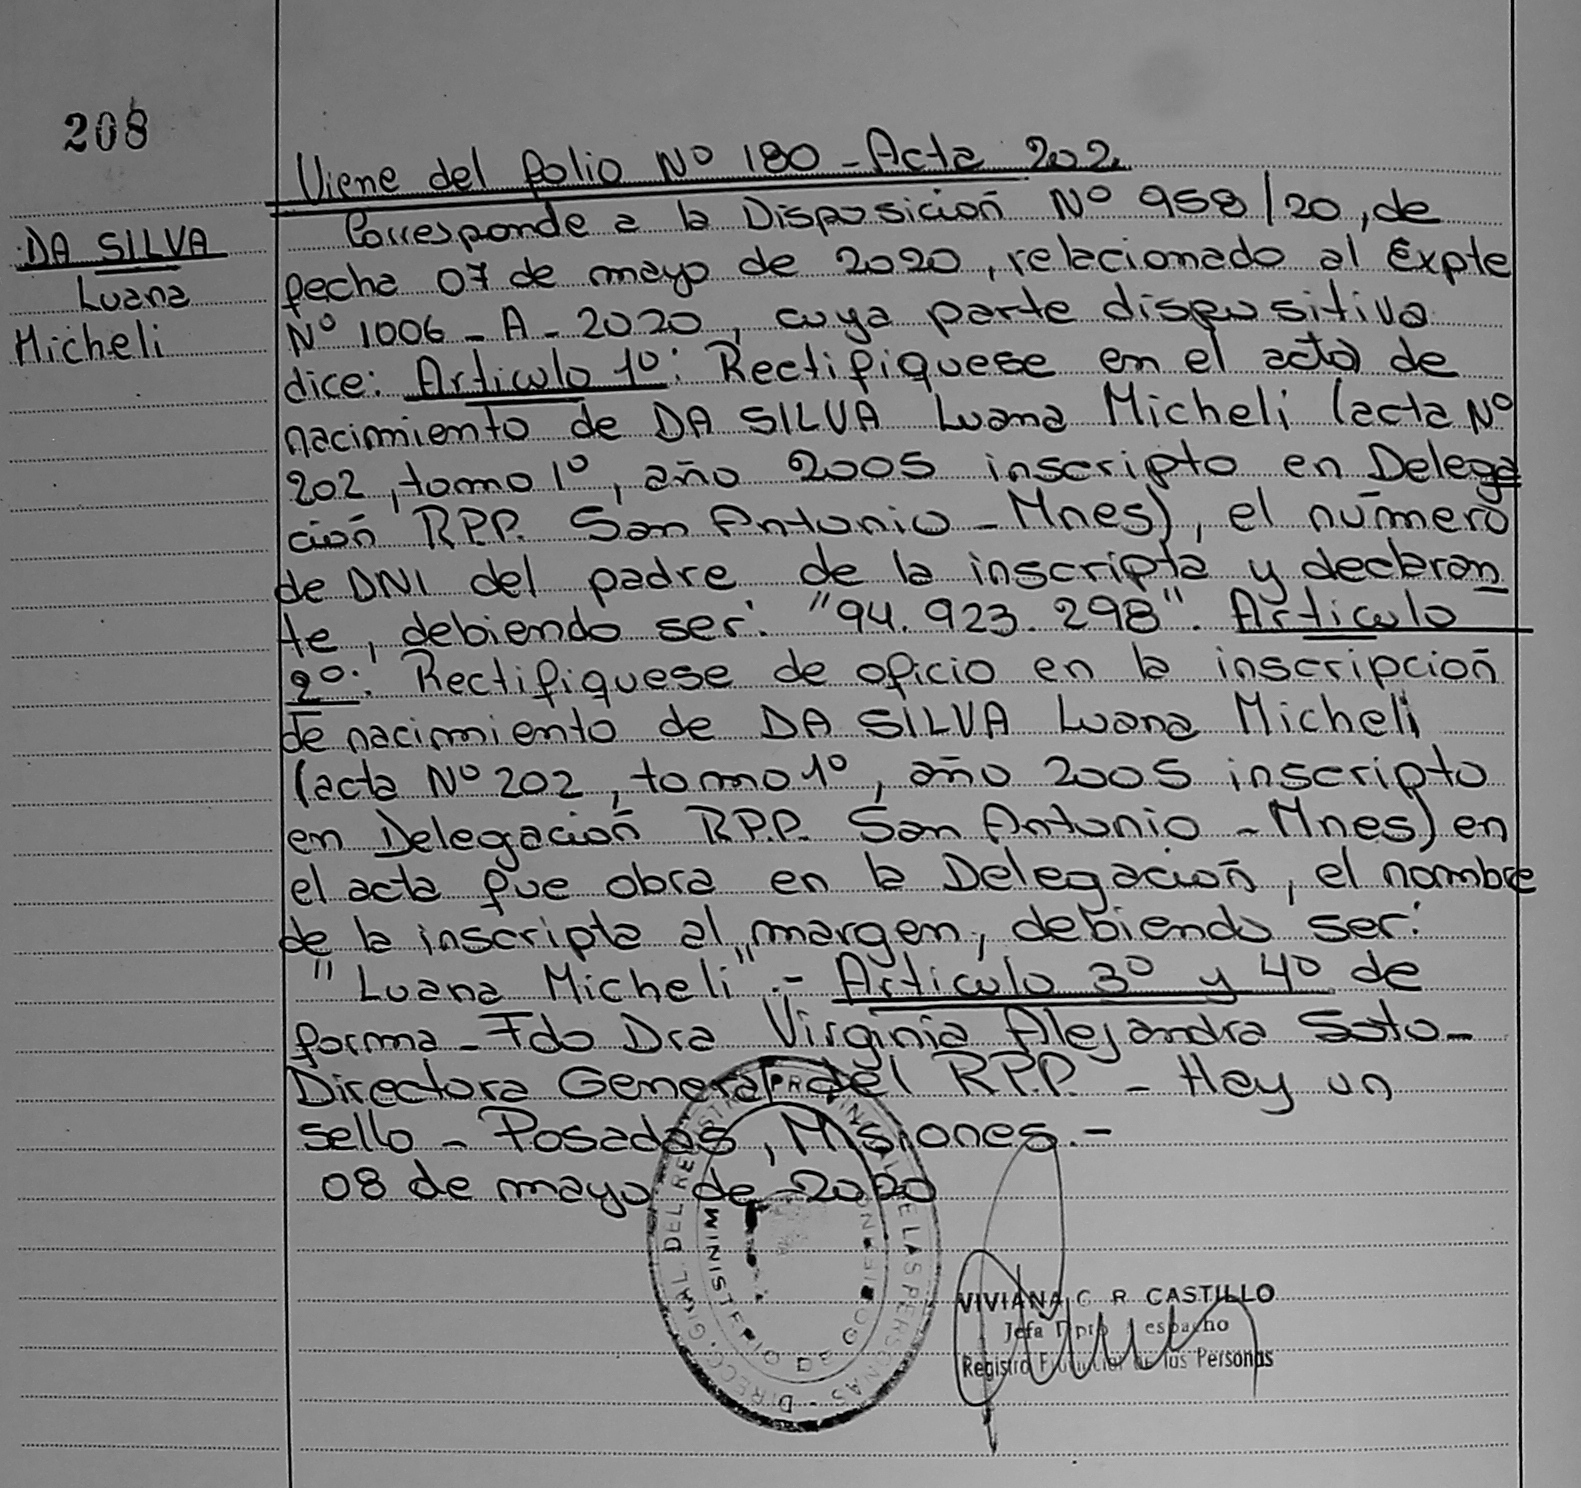 208
Viene del folio Nº 180 - Acta 202
DA SILVA
Luana
Micheli
Corresponde a la Disposición Nº 958/20, de
fecha 07 de mayo de 2020, relacionado al Expte
Nº 1006 - A - 2020, cuya parte dispositiva
dice: Artículo 1º: Rectifiquese en el acta de
nacimiento de DA SILVA Luana Micheli (acta Nº
202, tomo 1º, año 2005 inscripto en Delega
ción RPP. San Antonio - Mnes), el número
de DNI del padre de la inscripta y declaran
te, debiendo ser: "94.923.298". Artículo
2º: Rectifiquese de oficio en la inscripción
de nacimiento de DA SILVA Luana Micheli
(acta Nº 202, tomo 1º, año 2005 inscripto
en Delegación R.P.P. San Antonio - Mnes) en
el acta que obra en la Delegación, el nombre
de la inscripta al margen, debiendo ser:
"Luana Micheli".- Artículo 3º y 4º de
forma - Fdo Dra Virginia Alejandra Soto -
Directora General del R.P.P. - Hay un
sello - Posadas, Misiones.-
08 de mayo de 2020
DIRECC. GRAL. DEL REGISTR PR VINCIAL DE LAS PERSONAS
MINISTERIO DE GOBIERNO
VIVIANA C. R. CASTILLO
Jefa Dpto espacho
Registro de las Personas